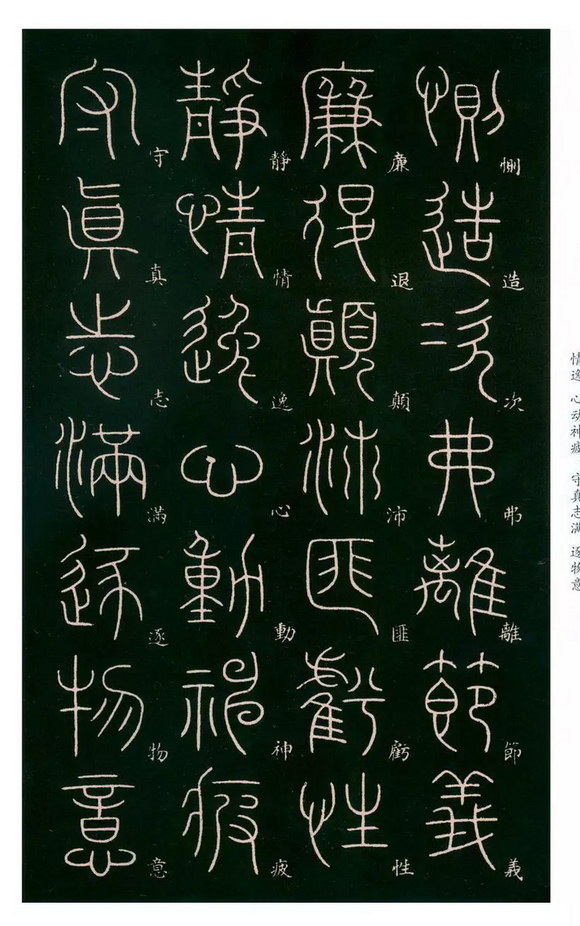 惻造次弗離節義
廉退顛沛匪虧性
靜情逸心動神疲
守真志滿逐物意
情逸 心动神疲 守真志满 逐物意